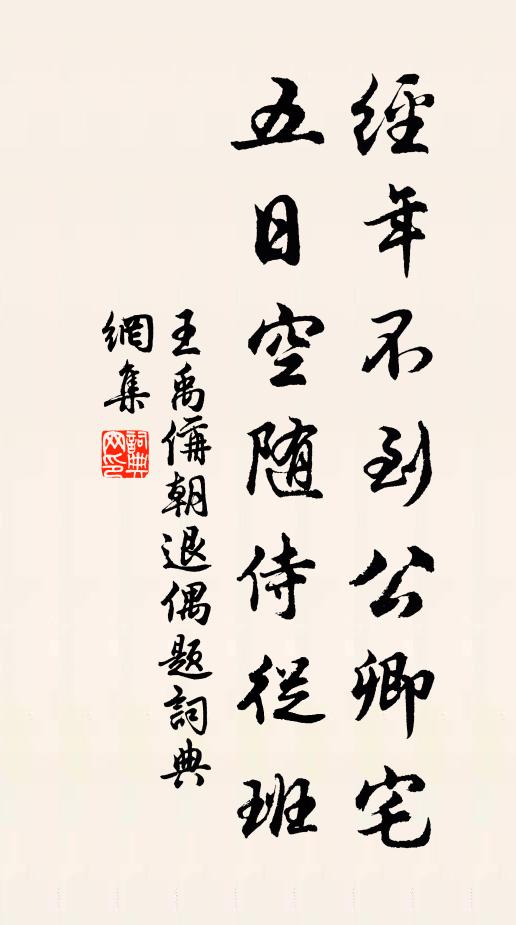 經年不到公卿宅
五日空随侍從班
王禹偁朝退偶題詞典
網集
詞典
网印